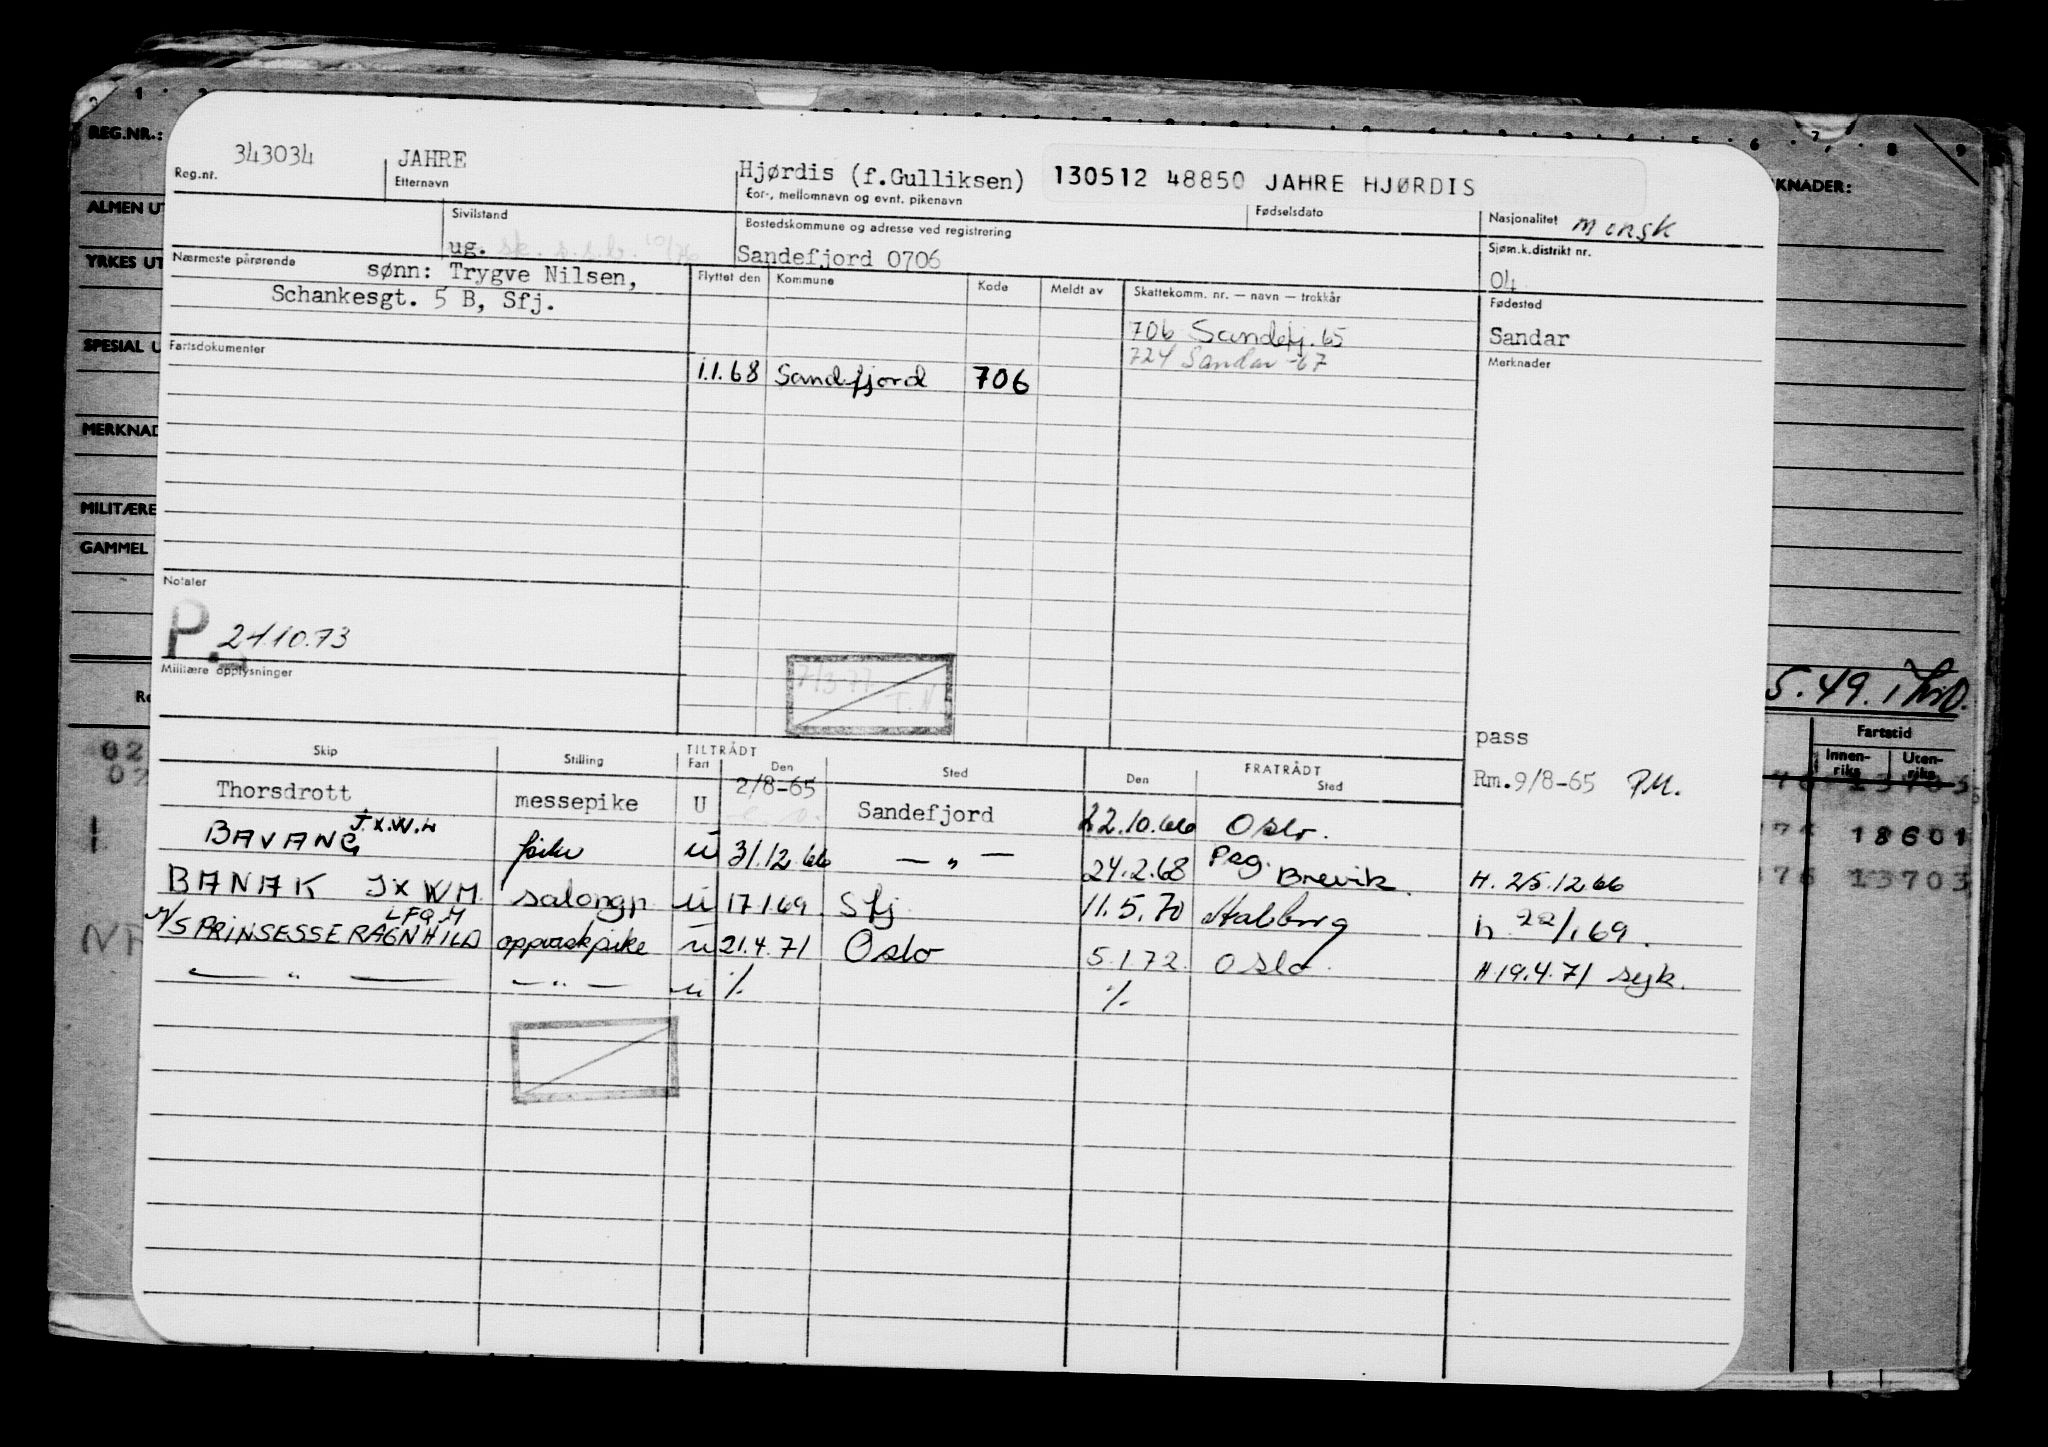 REG.NR.:
ALMEN UT
YRKES UT
SPESIAL U
MERKNAD
MILITÆRE
GAMMEL
KNADER:
343034 JAHRE Hjørdis (f.Gulliksen) 130512 48850 JAHRE HJØRDIS
Reg.nr. Etternavn For-, mellomnavn og evnt. pikenavn Fødselsdato Nasjonalitet norsk
Sivilstand Bostedskommune og adresse ved registrering Sjøm.k.distrikt nr.
ug. Sandefjord 0706 04
Nærmeste pårørende sønn: Trygve Nilsen,
Schankesgt. 5 B, Sfj.
Flyttet den Kommune Kode Meldt av Skattekomm. nr. — navn — trekkår Fødested
706 Sandefj. 65 Sandar
724 Sandar -67 Merknader
Fartsdokumenter
1.1.68 Sandefjord 706
Notater
P. 24.10.73
Militære opplysninger
7/3-77 T.N
5.49.
pass
Skip Stilling TILTRÅDT Fart Den Sted FRATRÅDT Den Sted
Rm.9/8-65 P.M.
Thorsdrott messepike U 2/8-65 Sandefjord 22.10.66 Oslo.
BAVANG J.X.W.H pike u 31.12.66 — " — 24.2.68 Psg. Brevik. H. 25.12.66
BANAK JXWM salongp u 17.1.69 Sfj 11.5.70 h 22/1 69.
M/S PRINSESSE RAGNHILD LFQM oppvaskpike u 21.4.71 Oslo 5.1.72. Oslo. H 19.4.71 syk.
— " — — " — u ./. ./.
Fartstid
Innen-riks Uten-riks
18601
13703